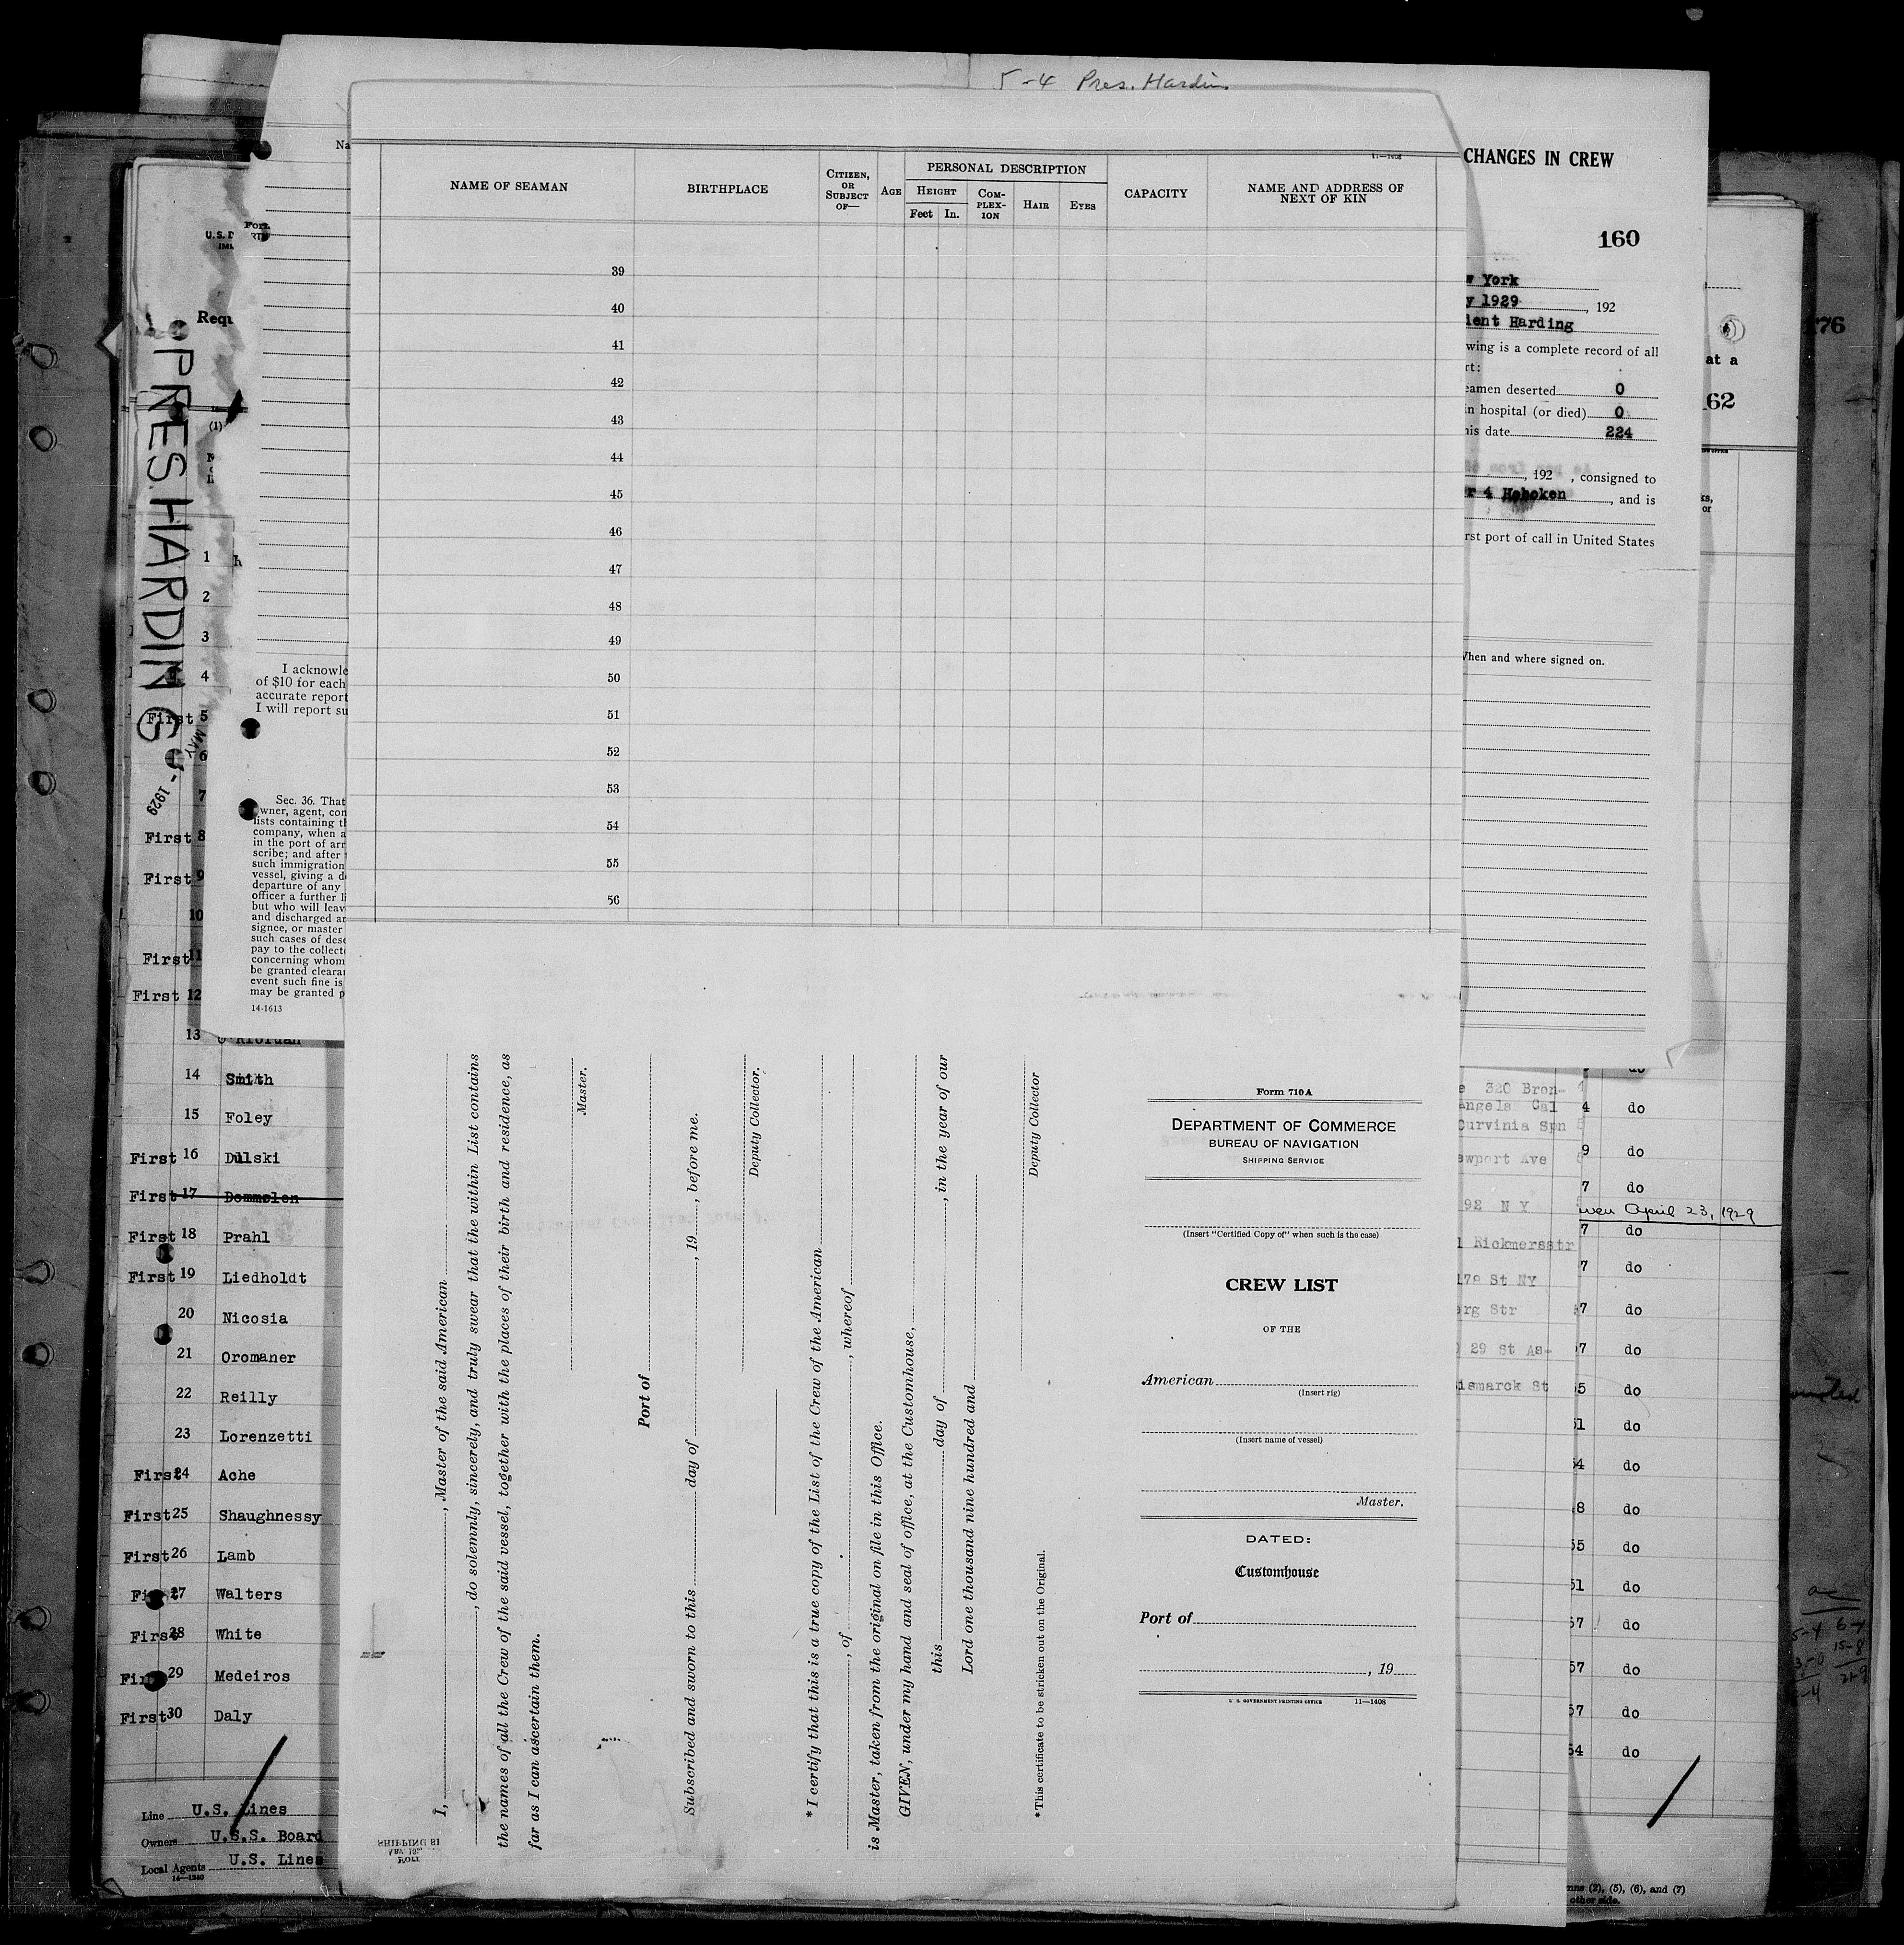 5-4 Pres. Harding
CHANGES IN CREW
160
w York
y 1929, 192
dent Harding
wing is a complete record of all
rt:
eamen deserted 0
in hospital (or died) 0
his date 224
, 192 , consigned to
r 4 Hoboken, and is
rst port of call in United States
When and where signed on.
176
at a
62
PRES. HARDING
MAY
- 1929
U.S. D
Form
Requ
(1)
NAME OF SEAMAN
BIRTHPLACE
CITIZEN, OR SUBJECT OF—
AGE
PERSONAL DESCRIPTION
HEIGHT
Feet In.
COM-PLEX-ION
HAIR
EYES
CAPACITY
NAME AND ADDRESS OF NEXT OF KIN
11—1408
39
40
41
42
43
44
45
46
47
48
49
50
51
52
53
54
55
56
I acknowle
of $10 for each
accurate report
I will report su
Sec. 36. That
owner, agent, con
lists containing th
company, when a
in the port of arr
scribe; and after
such immigration
vessel, giving a d
departure of any
officer a further li
but who will leav
and discharged ar
signee, or master
such cases of dese
pay to the collecto
concerning whom
be granted clearan
event such fine is
may be granted p
14-1613
1
2
3
4
First 5
6
7
First 8
First 9
10
First 11
First 12
13 O'Riordan
14 Smith
15 Foley
First 16 Dulski
First 17 Dommolen
First 18 Prahl
First 19 Liedholdt
20 Nicosia
21 Oromaner
22 Reilly
23 Lorenzetti
First 24 Ache
First 25 Shaughnessy
First 26 Lamb
First 27 Walters
First 28 White
First 29 Medeiros
First 30 Daly
Line U.S. Lines
Owners U.S.S. Board
Local Agents U.S. Lines
14—1240
I, , Master of the said American
, do solemnly, sincerely, and truly swear that the within List contains
the names of all the Crew of the said vessel, together with the places of their birth and residence, as
far as I can ascertain them.
Master.
Port of
Subscribed and sworn to this day of , 19 , before me.
Deputy Collector.
*I certify that this is a true copy of the List of the Crew of the American
, of , whereof
is Master, taken from the original on file in this Office.
GIVEN, under my hand and seal of office, at the Customhouse,
this day of , in the year of our
Lord one thousand nine hundred and
Deputy Collector
*This certificate to be stricken out on the Original.
Form 710A
DEPARTMENT OF COMMERCE
BUREAU OF NAVIGATION
SHIPPING SERVICE
(Insert "Certified Copy of" when such is the case)
CREW LIST
OF THE
American
(Insert rig)
(Insert name of vessel)
Master.
DATED:
Customhouse
Port of
, 19
U. S. GOVERNMENT PRINTING OFFICE 11—1408
e 320 Bron-
Angels Cal
Curvinia Spn
ewport Ave
92 N Y
l Rickmersstr
178 St NY
arg Str
29 St As-
ismarck St
do
4 do
9 do
7 do
April 23, 1929
7 do
7 do
7 do
7 do
5 do
51 do
54 do
8 do
55 do
51 do
57 do
57 do
57 do
54 do
5-4 6-4
15-8
21-9
mns (2), (5), (6), and (7)
other side.